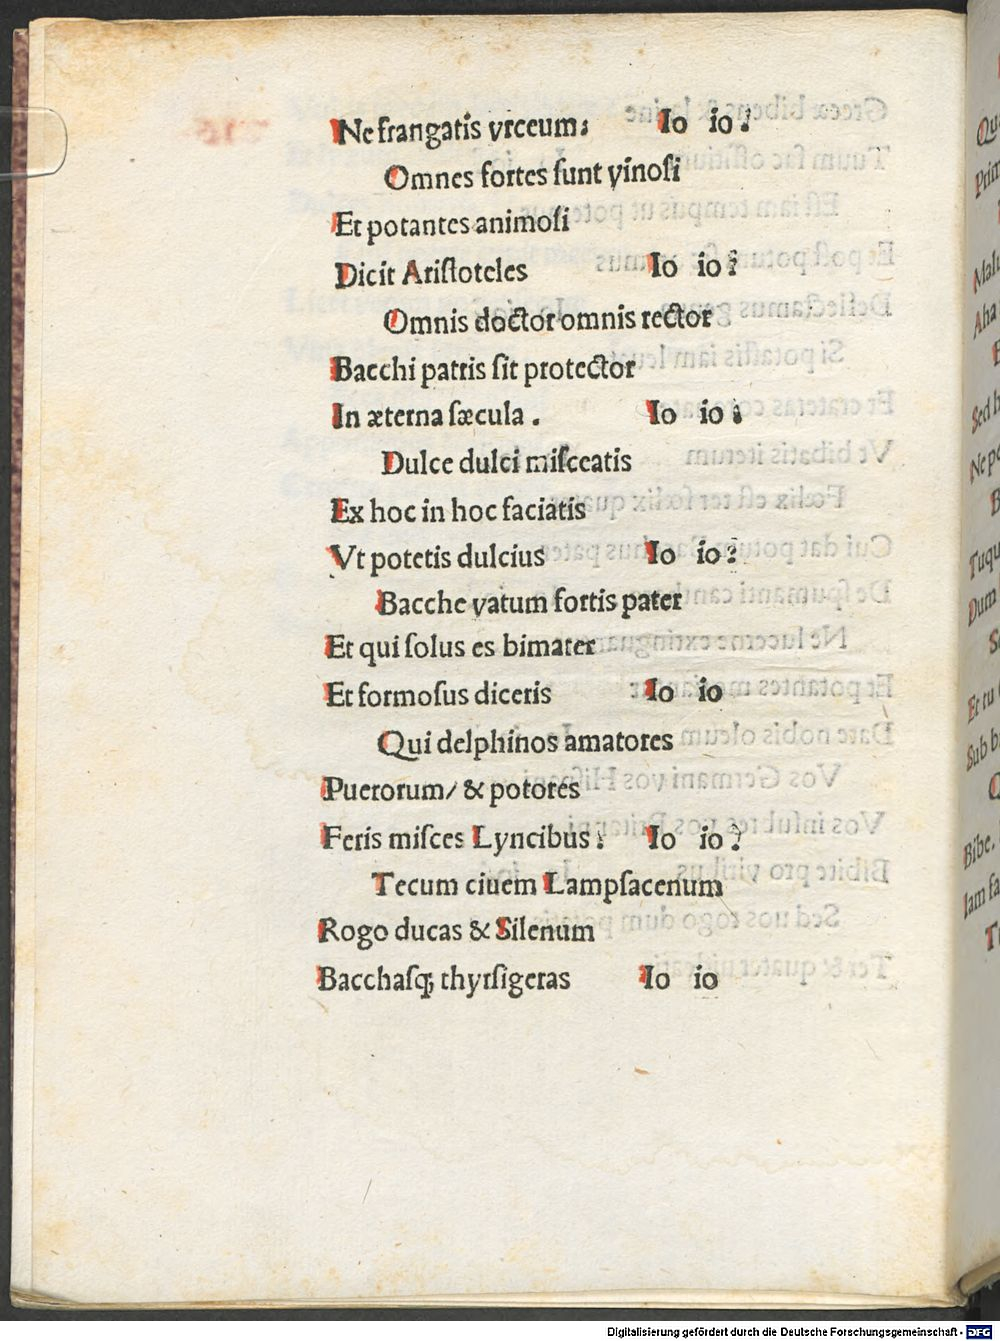 Ne frangatis vrceum: Io io?
Omnes fortes ſunt vinoſi
Et potantes animoſi
Dicit Ariſtoteles Io io?
Omnis doctor omnis rector
Bacchi patris ſit protector
In æterna ſæcula . Io io:
Dulce dulci miſceatis
Ex hoc in hoc faciatis
Vt potetis dulcius Io io?
Bacche vatum fortis pater
Et qui ſolus es bimater
Et formoſus diceris Io io
Qui delphinos amatores
Puerorum/ & potores
Feris miſces Lyncibus: Io io?
Tecum ciuem Lampſacenum
Rogo ducas & Silenum
Bacchaſq; thyrſigeras Io io
Digitalisierung gefördert durch die Deutsche Forschungsgemeinschaft - DFG